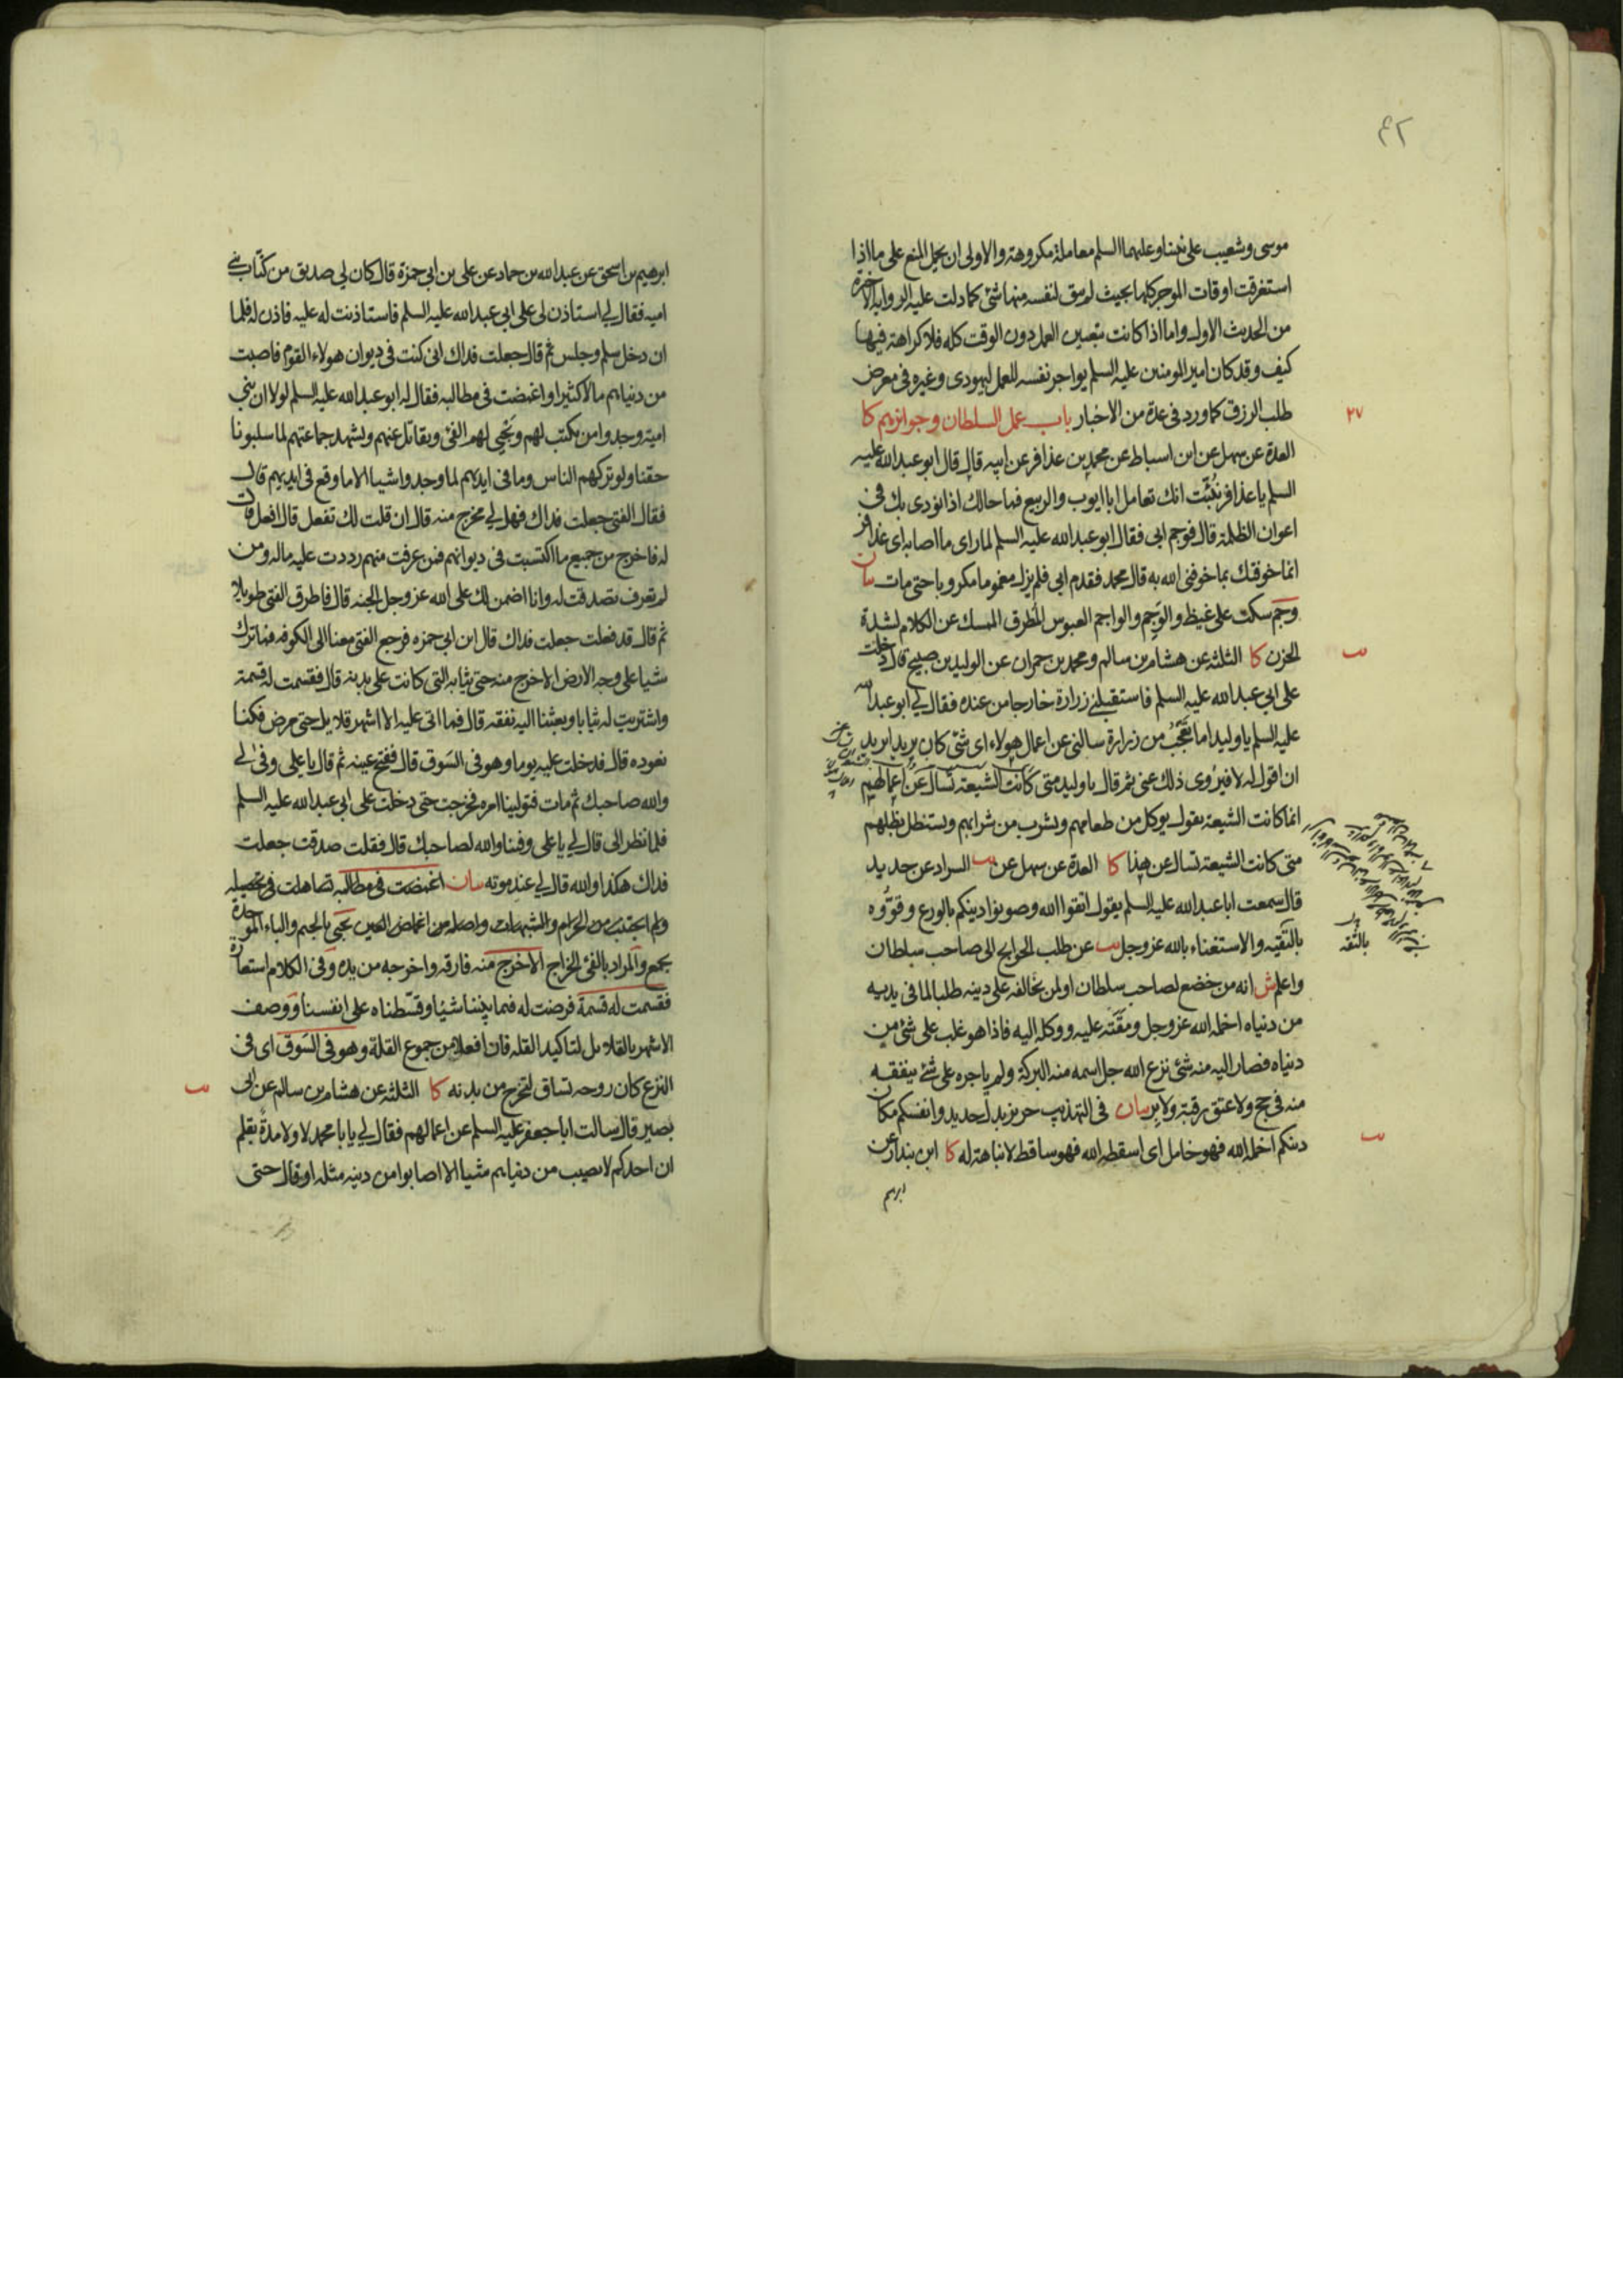 ٤٢
موسى وشعيب على نبينا وعليهما السلم معاملة مكروهة والاولى ان يحمل المنع على ما اذا
استغرقت اوقات الموجر كلها بحيث لم يبق لنفسه منها شئ كما دلت عليه الرواية الاخيرة
من الحديث الاول واما اذا كانت بتعيين العمل دون الوقت كله فلا كراهة فيها
كيف وقد كان امير المومنين عليه السلم يواجر نفسه للعمل ليهودى وغيره فى معرض
طلب الرزق كما ورد فى عدة من الاخبار باب عمل السلطان وجوائزهم كا
٢٧
العدة عن سهل عن ابن اسباط عن محمد بن عذافر عن ابيه قال قال ابو عبد الله عليه
السلم يا عذافر نُبِّئت انك تعامل ابا ايوب والربيع فما حالك اذا نودى بك فى
اعوان الظلمة قال فوجم ابى فقال ابو عبد الله عليه السلم لما راى ما اصابه اى عذافر
انما خوفتك بما خوفنى الله به قال محمد فقدم ابى فلم يزل مغموما مكروبا حتى مات بيان
وجم سكت على غيظ والوجم والواجم العبوس المطرق الممسك عن الكلام لشدة
الحزن كا الثلثة عن هشام بن سالم ومحمد بن حمران عن الوليد بن صبيح قال دخلت
يب
على ابى عبد الله عليه السلم فاستقبلنى زرارة خارجا من عنده فقال لي ابو عبد الله
عليه السلم يا وليد اما تعجب من زرارة سالنى عن اعمال هولاء اى شئ كان يريد ايريد
ان اقول له لا فيروى ذلك عنى ثم قال يا وليد متى كانت الشيعة تسال عن اعمالهم
انما كانت الشيعة تقول يوكل من طعامهم ويشرب من شرابهم ويستظل بظلهم
متى كانت الشيعة تسال عن هذا كا العدة عن سهل عن يب السراد عن حديد
قال سمعت ابا عبد الله عليه السلم يقول اتقوا الله وصونوا دينكم بالورع وقوّوه
بالتقية والاستغناء بالله عز وجل يب عن طلب الحوايج الى صاحب سلطان
بالثقة
واعلم ش انه من خضع لصاحب سلطان او لمن يخالفه على دينه طلبا لما فى يديه
من دنياه اخمله الله عز وجل ومقته عليه ووكله اليه فاذا هو غلب على شئ من
دنياه فصار اليه منه شئ نزع الله جل اسمه منه البركة ولم ياجره على شئ ينفقه
منه فى حج ولا عتق رقبة ولا بر بيان فى التهذيب حريز بدل حديد وانفسكم مكان
دينكم اخمله الله فهو خامل اى اسقطه الله فهو ساقط لا نباهة له كا ابن بندار عن
يب
ابرهيم
ابرهيم بن اسحق عن عبد الله بن حماد عن على بن ابى حمزة قال كان لي صديق من كتّاب بنى
اميه فقال لي استاذن لى على ابى عبد الله عليه السلم فاستاذنت له عليه فاذن له فلما
ان دخل سلم وجلس ثم قال جعلت فداك انى كنت فى ديوان هولاء القوم فاصبت
من دنياهم مالا كثيرا واغمضت فى مطالبه فقال له ابو عبد الله عليه السلم لولا ان بنى
امية وجدوا من يكتب لهم ويجبي لهم الفئ ويقاتل عنهم ويشهد جماعتهم لما سلبونا
حقنا ولو تركهم الناس وما فى ايديهم لما وجدوا شيا الا ما وقع فى ايديهم قال
فقال الفتى جعلت فداك فهل لي مخرج منه قال ان قلت لك تفعل قال افعل قال
له فاخرج من جميع ما اكتسبت فى ديوانهم فمن عرفت منهم رددت عليه ماله ومن
لم تعرف تصدقت له وانا اضمن لك على الله عز وجل الجنه قال فاطرق الفتى طويلا
ثم قال قد فعلت جعلت فداك قال ابن ابى حمزه فرجع الفتى معنا الى الكوفه فما ترك
شيا على وجه الارض الا خرج منه حتى ثيابه التى كانت على بدنه قال فقسمت له قسمة
واشتريت له ثيابا وبعثنا اليه نفقه قال فما اتى عليه الا اشهر قلايل حتى مرض فكنا
نعوده قال فدخلت عليه يوما وهو فى السَوق قال ففتح عينيه ثم قال يا على وفى لي
والله صاحبك ثم مات فتولينا امره فخرجت حتى دخلت على ابى عبد الله عليه السلم
فلما نظر الى قال لي يا على وفينا والله لصاحبك قال فقلت صدقت جعلت
فداك هكذا والله قال لي عند موته بيان اغمضت فى مطالبه تساهلت فى تحصيله
ولم اجتنب من الحرام والشبهات واصله من اغماض العين يجبى بالجيم والباء الموحدة
يجمع والمراد بالفئ الخراج الا خرج منه فارقه واخرجه من يده وفى الكلام استعارة
فقسمت له قسمة فرضت له فيما بيننا شيئا وقسّطناه على انفسنا ووصف
الاشهر بالقلايل لتاكيد القله فان افعلا من جموع القلة وهو فى السَوق اى فى
النزع كان روحه تساق لتخرج من بدنه كا الثلثة عن هشام بن سالم عن ابى
يب
بصير قال سالت ابا جعفر عليه السلم عن اعمالهم فقال لي يا با محمد لا ولا مدة بقلم
ان احدكم لا يصيب من دنياهم شيا الا اصابوا من دينه مثله او قال حتى